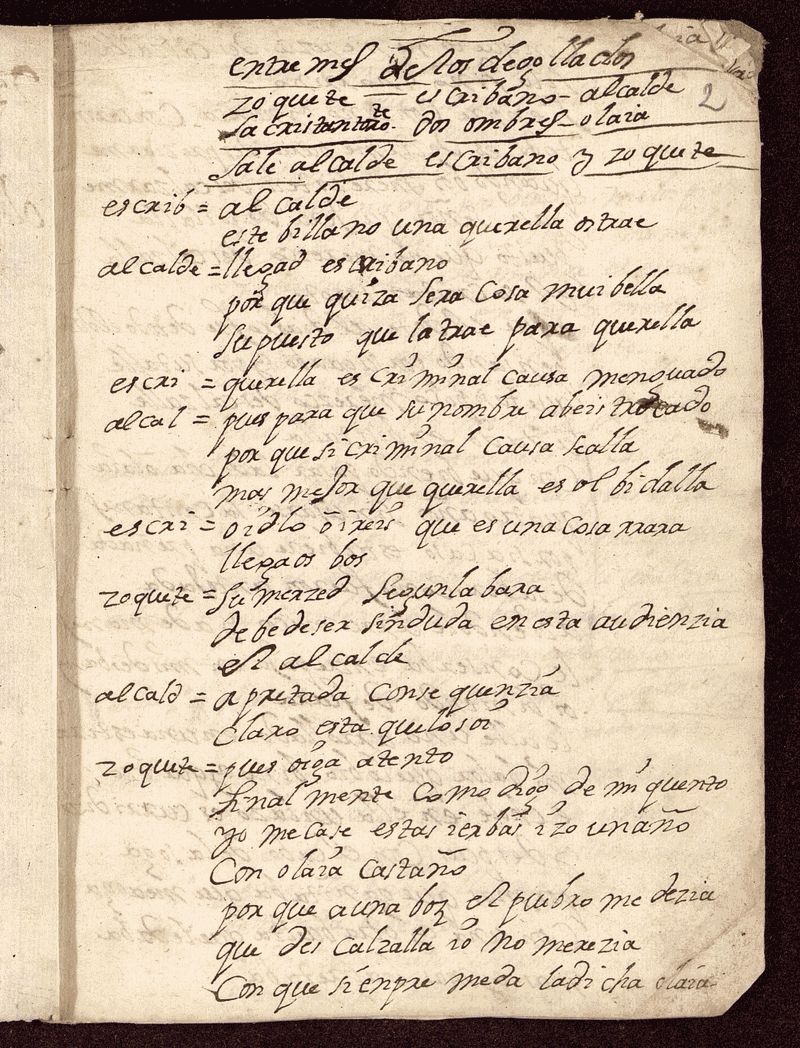 entremes de los degollados
zoquete — escribano — alcalde 2
sacristan dos ombres — olaia
Sale alcalde escribano y zoquete
escrib = alcalde
este billano una querella os trae
alcalde = llegad escribano
por que quiza sera cosa mui bella
supuesto que la trae para querella
escri = querella es criminal causa menguado
alcal = pues para que su nombre abeis trocado
por que si criminal causa sealla
mas mejor que querella es olbidalla
escri = oidlo oireis que es una cosa rrara
llegaos bos
zoquete = su merzed segun la bara
debe de ser sin duda en esta audienzia
el alcalde
alcald = apretada consequenzia
claro esta que lo soi
zoquete = pues oiga atento
finalmente como digo de mi quento
yo me case estas ierbas izo un año
con olaia castaño
por que a una boz el puebro me dezia
que descalzalla io no merezia
con que sienpre me da ladicha olaia